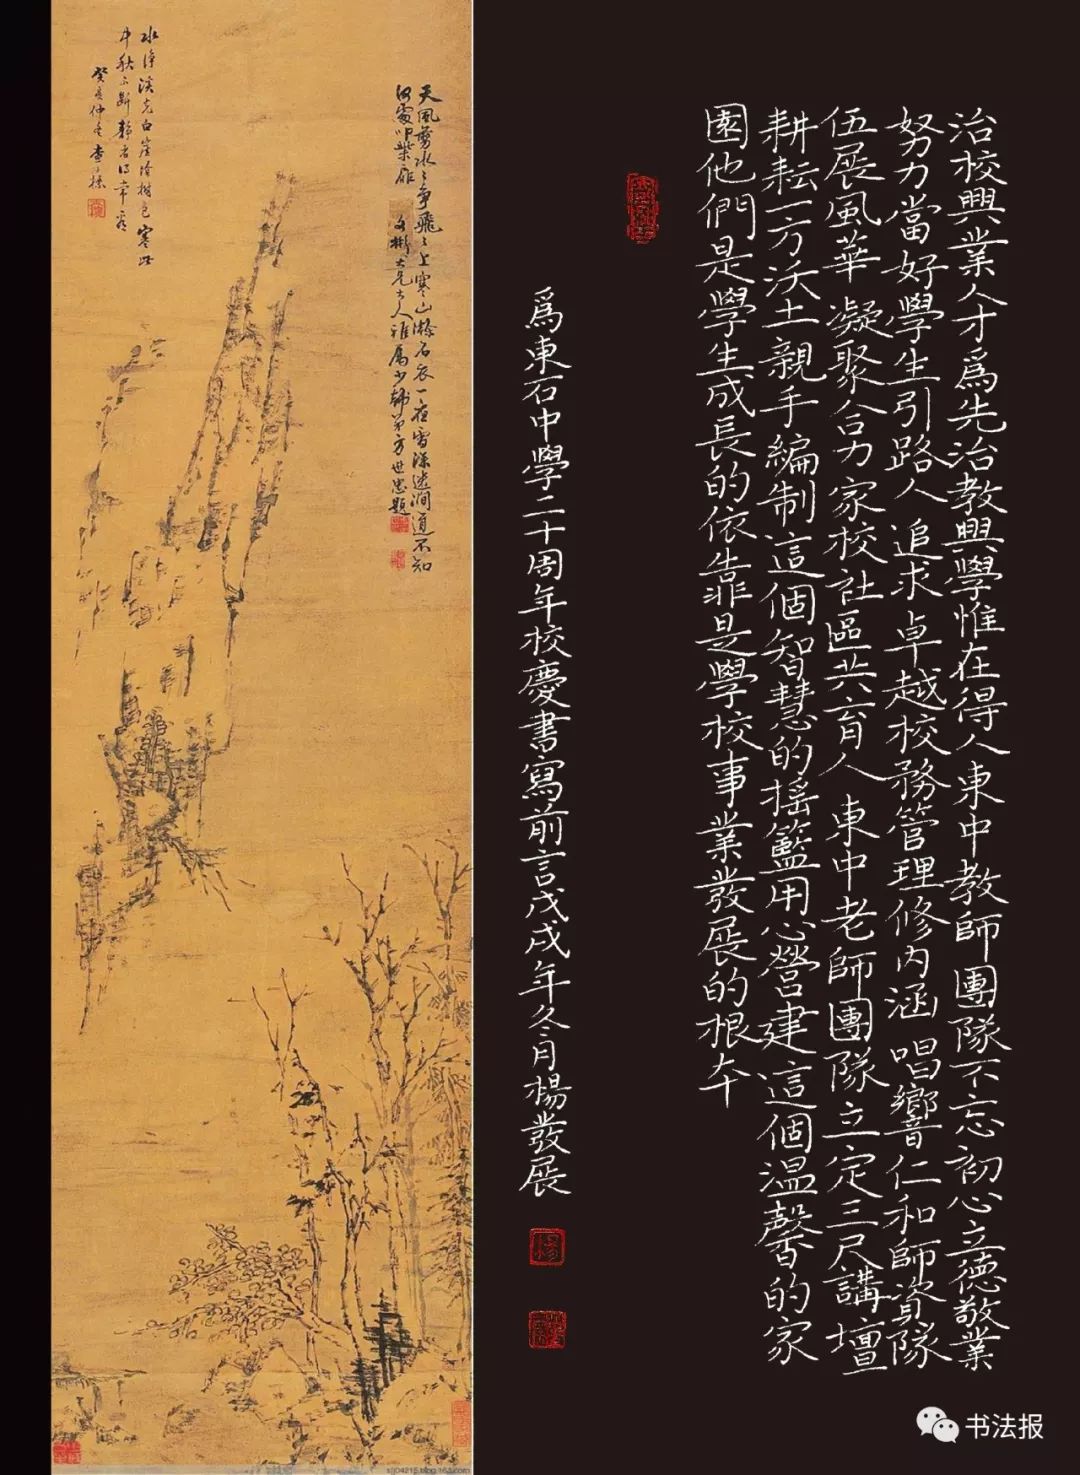 治校興業人才爲先治教興學惟在得人東中教師團隊不忘初心立德敬業
努力當好學生引路人追求卓越校務管理修内涵唱響仁和師資隊
伍展風華凝聚合力家校社區共育人東中老師團隊立定三尺講壇
耕耘一方沃土親手編制這個智慧的摇籃用心營建這個温馨的家
園他們是學生成長的依靠是學校事業發展的根本
爲東石中學二十周年校慶書寫前言戊戌年冬月楊發展
天風剪水水爭飛飛上寒山濺石衣一夜雪深迷澗道不知
何處叩柴扉
文彬大兄大人雅屬少郵弟方世忠題
水淨溪光白崖冷樹色寒此
中秋不斷靜者得常看
癸亥仲冬查士標
书法报